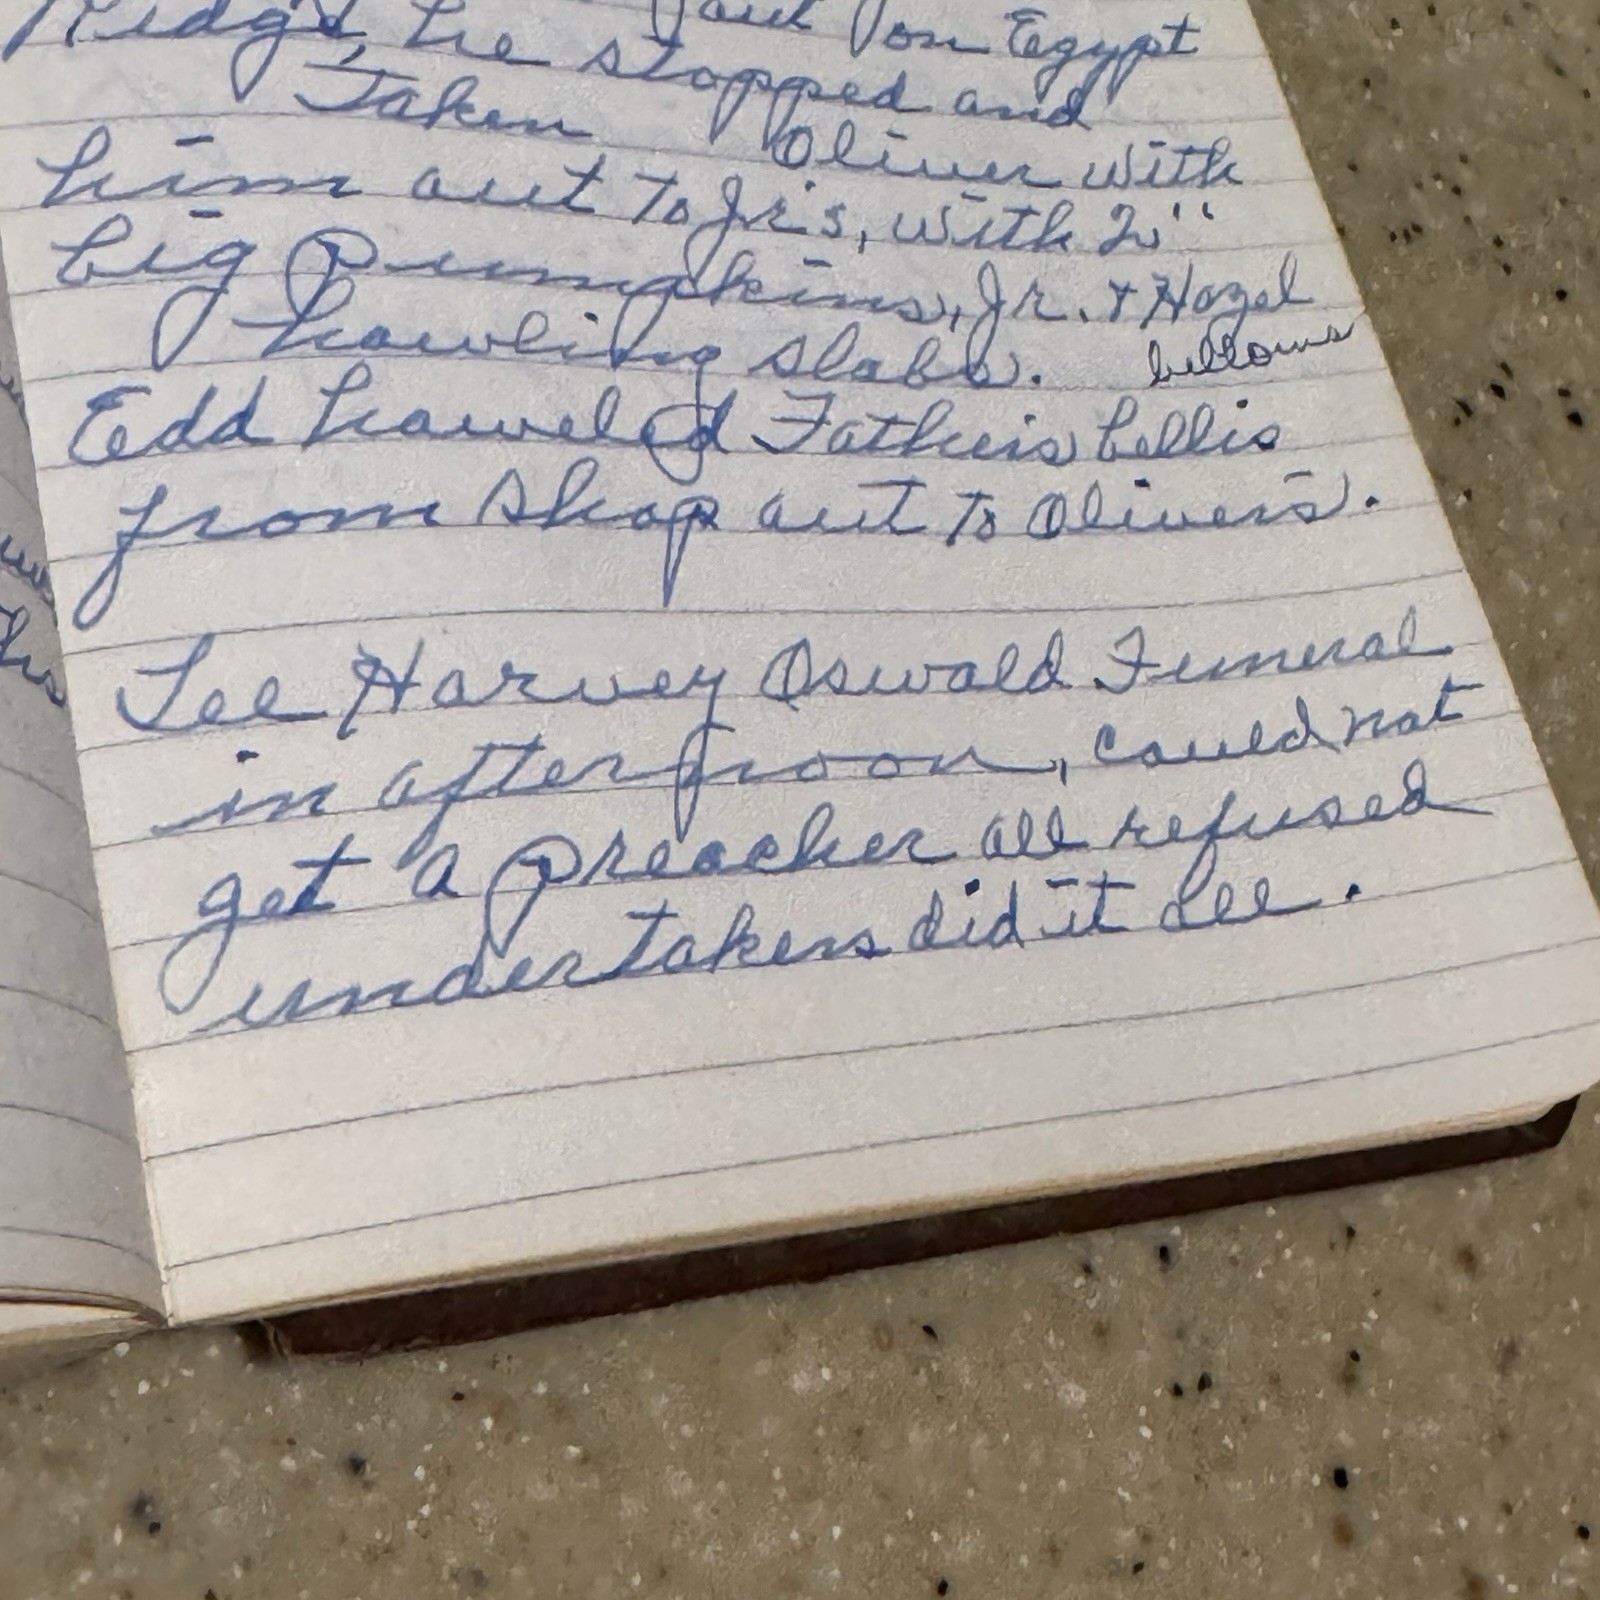 out on Egypt
Ridge, he stopped and
Taken Oliver with
him out to Jr's, with 2
big Pumpkins, Jr. & Hazel
hawling slabs. bellows
Edd haweled Father's bellis
from shop out to Oliver's.
Lee Harvey Oswald Funeral
in afternoon, could not
get a preacher all refused
undertakers did it all.